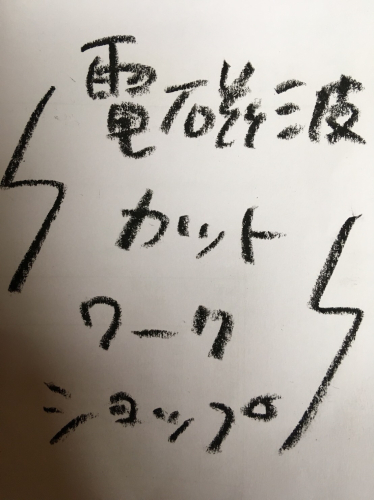 電磁波
カット
ワーク
ショップ